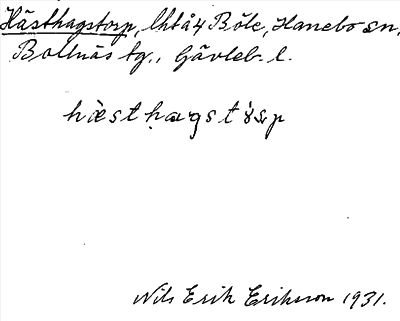 Hästhagstorp, lht å 4 Böle, Hanebo sn,
Bollnäs tg., Gävleb. l.
hæ̀sthagstórp
Nils Erik Eriksson 1931.